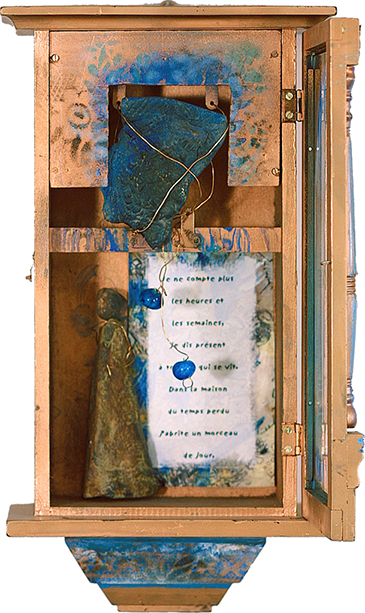 Je ne compte plus
les heures et
les semaines,
Je dis présent
à qui se vit.
Dans la maison
du temps perdu
J'abrite un morceau
de jour.